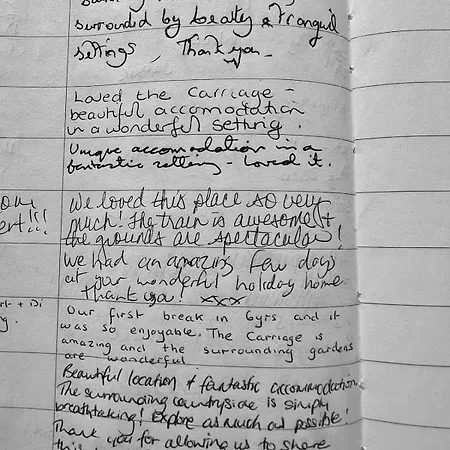 surrounded by beauty & Tranquil
settings, Thank you -
Loved the Carriage -
beautiful accomodation
in a wonderful setting.
Unique accomodation in a
fantastic setting - loved it.
We loved this place so very
much! The train is awesome &
the grounds are spectacular!
We had an amazing few days
at your wonderful holiday home.
Thank you! xxx
ert!!!
Our first break in 6yrs and it
was so enjoyable. The Carriage is
amazing and the surrounding gardens
are wonderful
Beautiful location & fantastic accommodation
The surrounding countryside is simply
breathtaking! Explore as much as possible!
Thank you for allowing us to share
this